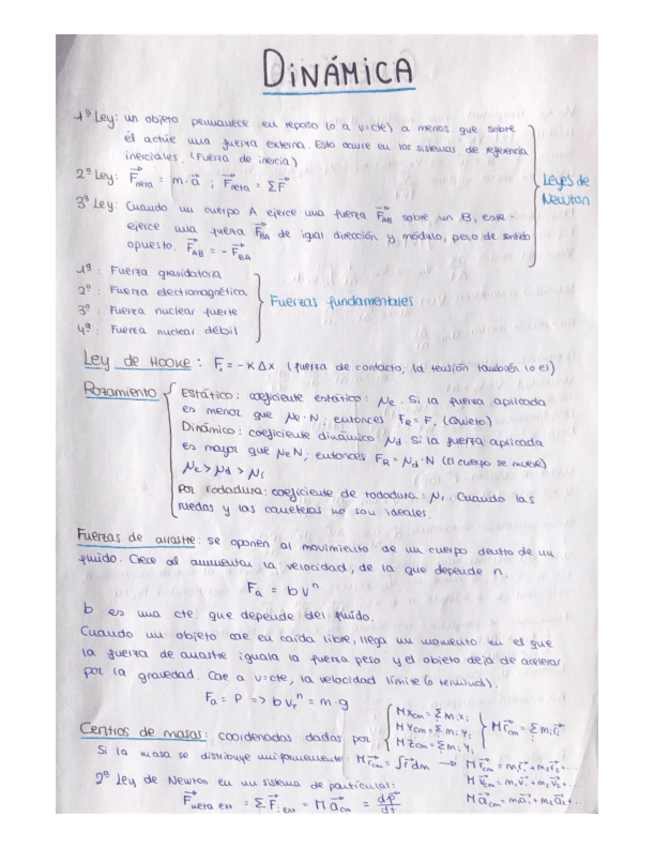 DINÁMICA
1ª Ley: un objeto permanece en reposo (o a v=cte) a menos que sobre
él actúe una fuerza externa. Esto ocurre en los sistemas de referencia
inerciales. (Fuerza de inercia)
2ª Ley: F⃗neta = m·a⃗ ; F⃗neta = ΣF⃗
3ª Ley: Cuando un cuerpo A ejerce una fuerza F⃗AB sobre un B, este
ejerce una fuerza F⃗BA de igual dirección y módulo, pero de sentido
opuesto. F⃗AB = - F⃗BA
Leyes de
Newton
1ª: Fuerza gravitatoria
2ª: Fuerza electromagnética
3ª: Fuerza nuclear fuerte
4ª: Fuerza nuclear débil
Fuerzas fundamentales
Ley de Hooke: F = -K Δx (fuerza de contacto; la tensión también lo es)
Rozamiento
Estático: coeficiente estático: μe. Si la fuerza aplicada
es menor que μe·N, entonces FR = F. (Quieto)
Dinámico: coeficiente dinámico μd. Si la fuerza aplicada
es mayor que μeN, entonces FR = μd·N (El cuerpo se mueve)
μe > μd > μr
Por rodadura: coeficiente de rodadura: μr. Cuando las
ruedas y las carreteras no son ideales.
Fuerzas de arrastre: se oponen al movimiento de un cuerpo dentro de un
fluido. Crece al aumentar la velocidad, de la que depende n.
Fa = bvⁿ
b es una cte. que depende del fluido.
Cuando un objeto cae en caída libre, llega un momento en el que
la fuerza de arrastre iguala la fuerza peso y el objeto deja de acelerar
por la gravedad. Cae a v=cte, la velocidad límite (o terminal).
Fa = P => bvTⁿ = m·g
Centros de masas: coordenadas dadas por
M xcm = Σ mi xi
M ycm = Σ mi yi
M zcm = Σ mi yi
M r⃗cm = Σ mi r⃗i
Si la masa se distribuye uniformemente: M r⃗cm = ∫r⃗dm → M r⃗cm = m1r⃗1 + m2r⃗2 + ...
M v⃗cm = m1v⃗1 + m2v⃗2 + ...
2ª Ley de Newton en un sistema de partículas:
M a⃗cm = m1a⃗1 + m2a⃗2 + ...
F⃗neta ext = Σ F⃗i ext = M a⃗cm = dp⃗/dt